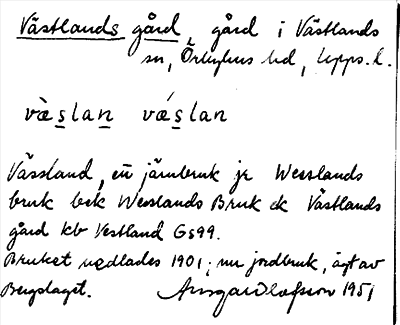 Västlands gård, gård i Västlands
sn, Örbyhus hd, Upps. l.
vὲslan vέslan
Vässland, en järnbruk jr Wesslands
bruk bek Wesslands Bruk ek Västlands
gård kb Vestland Gs99.
Bruket nedlades 1901; nu jordbruk, ägt av
Bergslaget. Ansgar Olofsson 1951